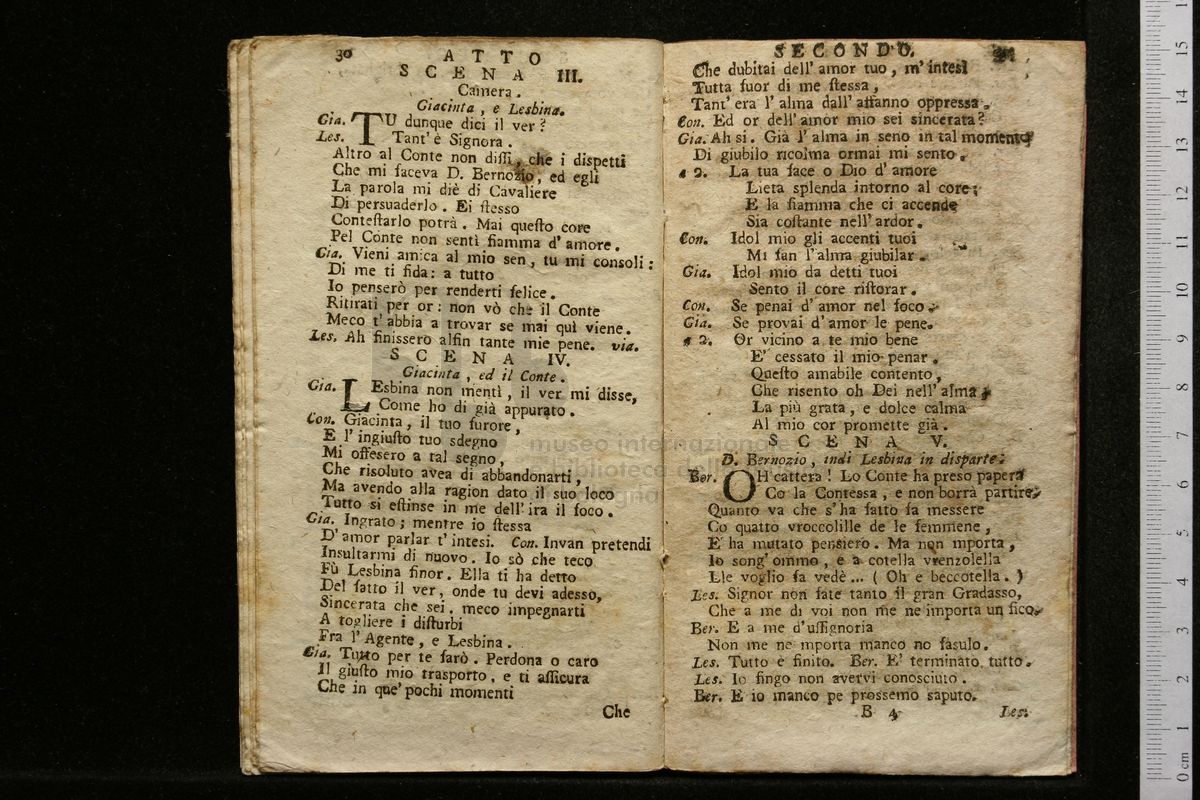 30 ATTO
SCENA III.
Camera.
Giacinta, e Lesbina.
Gia. TU dunque dici il ver?
Les. Tant' è Signora.
Altro al Conte non dissi, che i dispetti
Che mi faceva D. Bernozio, ed egli
La parola mi diè di Cavaliere
Di persuaderlo. Ei stesso
Contestarlo potrà. Mai questo core
Pel Conte non sentì fiamma d' amore.
Gia. Vieni amica al mio sen, tu mi consoli:
Di me ti fida: a tutto
Io penserò per renderti felice.
Ritirati per or: non vò che il Conte
Meco t' abbia a trovar se mai quì viene.
Les. Ah finissero alfin tante mie pene. via.
SCENA IV.
Giacinta, ed il Conte.
Gia. LEsbina non mentì, il ver mi disse,
Come ho di già appurato.
Con. Giacinta, il tuo furore,
E l' ingiusto tuo sdegno
Mi offesero a tal segno,
Che risoluto avea di abbandonarti,
Ma avendo alla ragion dato il suo loco
Tutto si estinse in me dell' ira il foco.
Gia. Ingrato; mentre io stessa
D' amor parlar t' intesi. Con. Invan pretendi
Insultarmi di nuovo. Io sò che teco
Fù Lesbina finor. Ella ti ha detto
Del fatto il ver, onde tu devi adesso,
Sincerata che sei, meco impegnarti
A togliere i disturbi
Fra l' Agente, e Lesbina.
Gia. Tutto per te farò. Perdona o caro
Il giusto mio trasporto, e ti assicura
Che in que' pochi momenti
Che
SECONDO.
Che dubitai dell' amor tuo, m' intesi
Tutta fuor di me stessa,
Tant' era l' alma dall' affanno oppressa.
Con. Ed or dell' amor mio sei sincerata?
Gia. Ah si. Già l' alma in seno in tal momento
Di giubilo ricolma ormai mi sento.
a 2. La tua face o Dio d' amore
Lieta splenda intorno al core;
E la fiamma che ci accende
Sia costante nell' ardor.
Con. Idol mio gli accenti tuoi
Mi fan l' alma giubilar.
Gia. Idol mio da detti tuoi
Sento il core ristorar.
Con. Se penai d' amor nel foco.
Gia. Se provai d' amor le pene.
a 2. Or vicino a te mio bene
E' cessato il mio penar.
Questo amabile contento,
Che risento oh Dei nell' alma
La più grata, e dolce calma
Al mio cor promette già.
SCENA V.
D. Bernozio, indi Lesbina in disparte.
Ber. OH cattera! Lo Conte ha preso papera
Co la Contessa, e non borrà partire.
Quanto va che s' ha fatto fa messere
Co quatto vroccolille de le femmene,
E' ha mutato penziero. Ma non mporta,
Io song' ommo, e a cotella vrenzolella
Lle voglio fa vedè ... ( Oh e beccotella. )
Les. Signor non fate tanto il gran Gradasso,
Che a me di voi non me ne importa un fico.
Ber. E a me d' ussignoria
Non me ne mporta manco no fasulo.
Les. Tutto è finito. Ber. E' terminato tutto.
Les. Io fingo non avervi conosciuto.
Ber. E io manco pe prossemo saputo.
B 4 Les.
museo internazionale
e biblioteca della